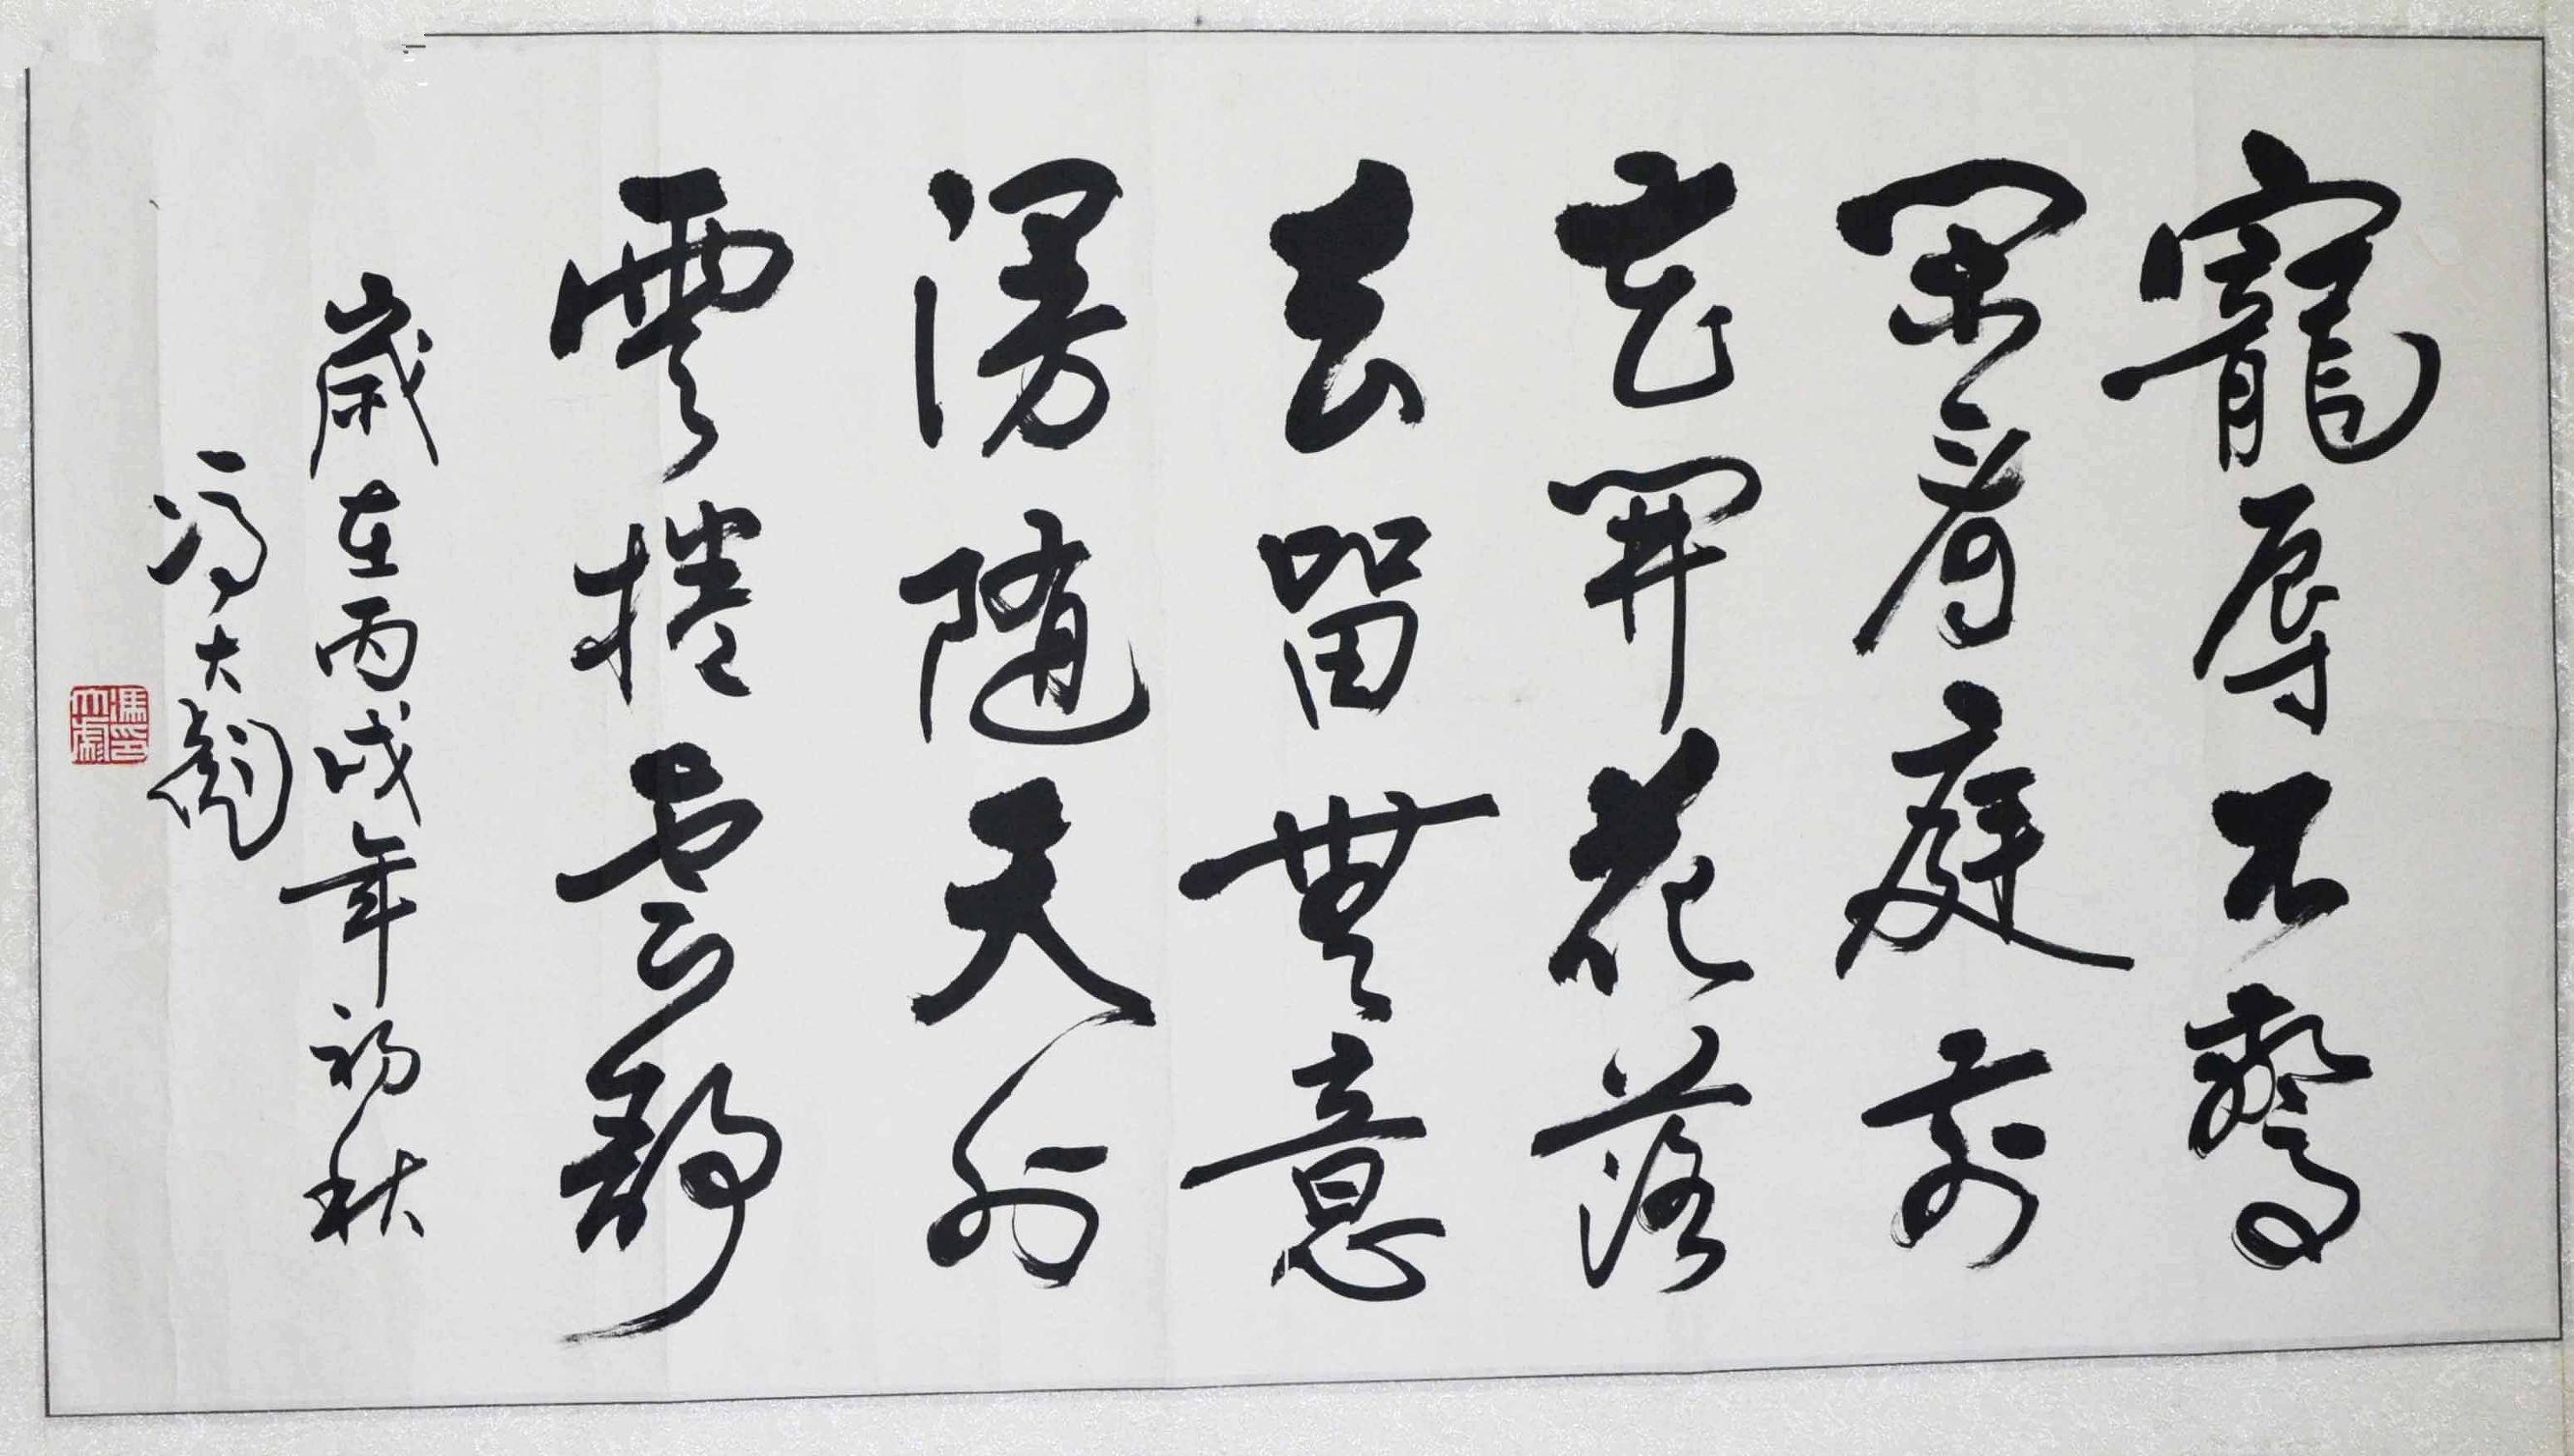 寵辱不驚
閑看庭前
花開花落
去留無意
漫隨天外
雲捲雲舒
歲在丙戌年初秋
馮大彪
馮印大彪